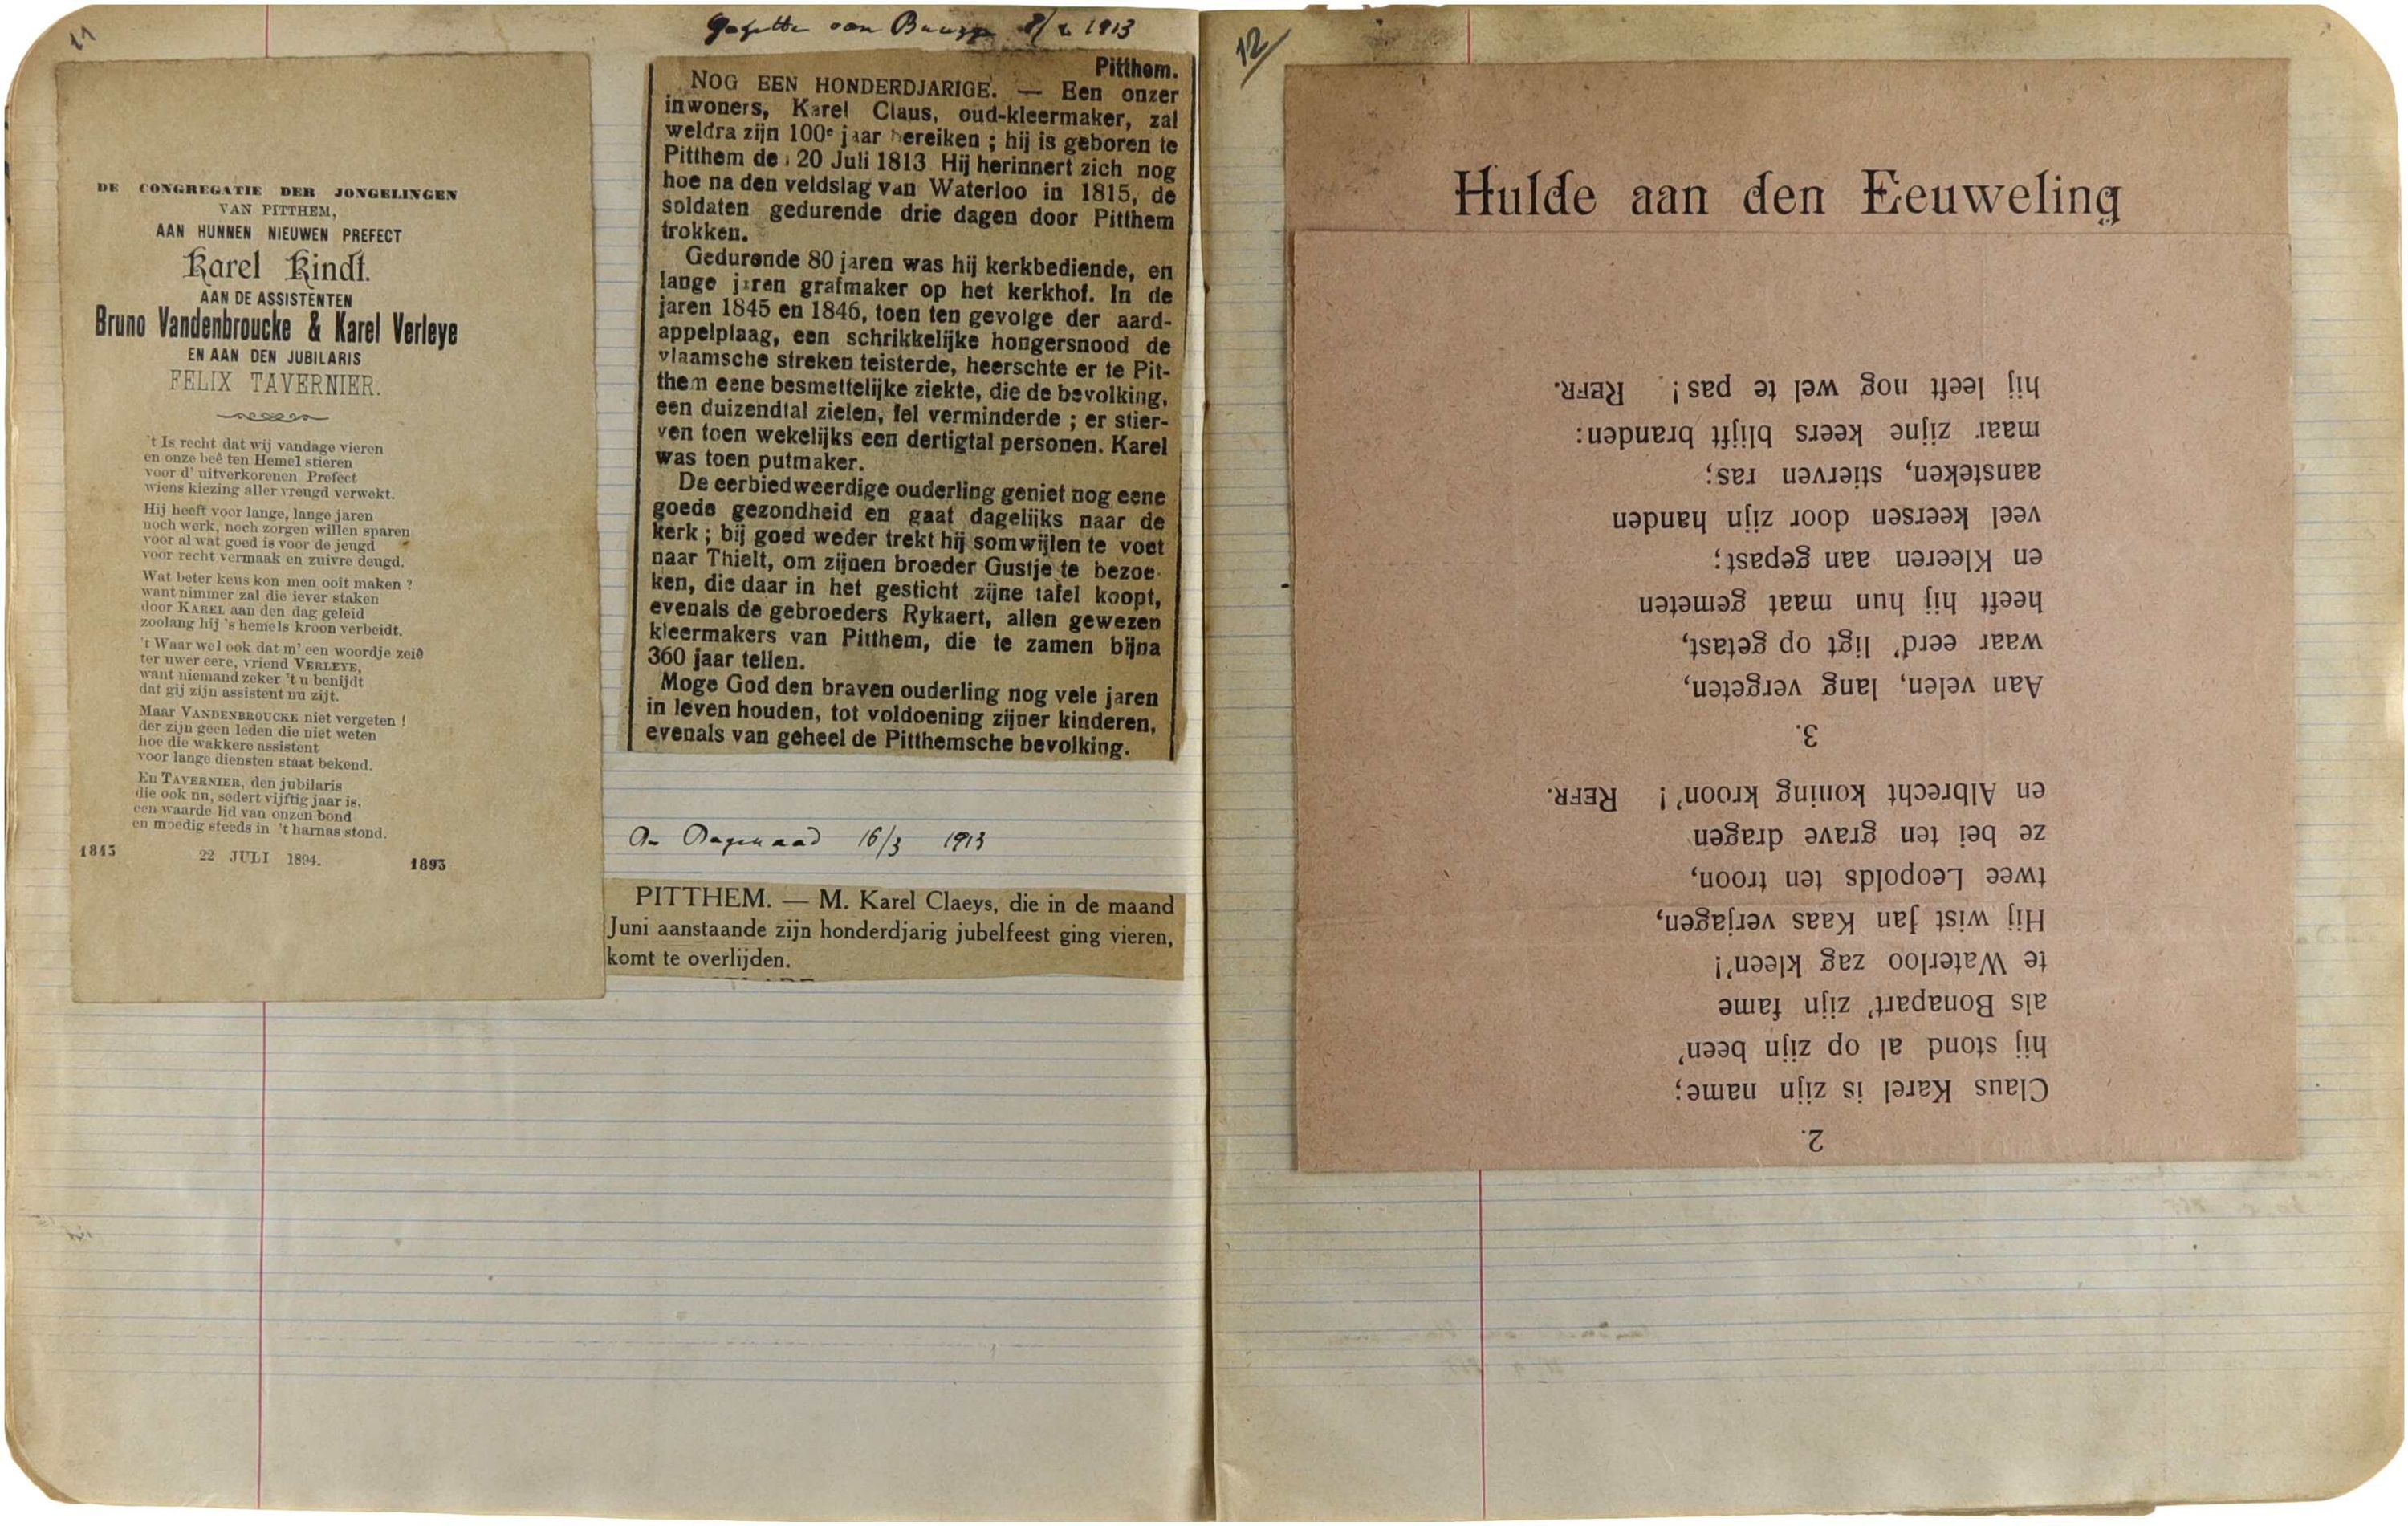 11
DE CONGREGATIE DER JONGELINGEN
VAN PITTHEM,
AAN HUNNEN NIEUWEN PREFECT
Karel Kindt.
AAN DE ASSISTENTEN
Bruno Vandenbroucke & Karel Verleye
EN AAN DEN JUBILARIS
FELIX TAVERNIER.
't Is recht dat wij vandage vieren
en onze beê ten Hemel stieren
voor d' uitverkorenen Prefect
wiens kiezing aller vreugd verwekt.
Hij heeft voor lange, lange jaren
noch werk, noch zorgen willen sparen
voor al wat goed is voor de jeugd
voor recht vermaak en zuivre deugd.
Wat beter keus kon men ooit maken ?
want nimmer zal die iever staken
door KAREL aan den dag geleid
zoolang hij 's hemels kroon verbeidt.
't Waar wel ook dat m' een woordje zeiê
ter uwer eere, vriend VERLEYE,
want niemand zeker 't u benijdt
dat gij zijn assistent nu zijt.
Maar VANDENBROUCKE niet vergeten !
der zijn geen leden die niet weten
hoe die wakkere assistent
voor lange diensten staat bekend.
En TAVERNIER, den jubilaris
die ook nu, sedert vijftig jaar is,
een waarde lid van onzen bond
en moedig steeds in 't harnas stond.
1843 22 JULI 1894. 1893
Gazette van Brugge 8/2 1913
Pitthem.
NOG EEN HONDERDJARIGE. — Een onzer
inwoners, Karel Claus, oud-kleermaker, zal
weldra zijn 100e jaar bereiken ; hij is geboren te
Pitthem de 20 Juli 1813 Hij herinnert zich nog
hoe na den veldslag van Waterloo in 1815, de
soldaten gedurende drie dagen door Pitthem
trokken.
Gedurende 80 jaren was hij kerkbediende, en
lange jaren grafmaker op het kerkhof. In de
jaren 1845 en 1846, toen ten gevolge der aard-
appelplaag, een schrikkelijke hongersnood de
vlaamsche streken teisterde, heerschte er te Pit-
them eene besmettelijke ziekte, die de bevolking,
een duizendtal zielen, fel verminderde ; er stier-
ven toen wekelijks een dertigtal personen. Karel
was toen putmaker.
De eerbiedweerdige ouderling geniet nog eene
goede gezondheid en gaat dagelijks naar de
kerk ; bij goed weder trekt hij somwijlen te voet
naar Thielt, om zijnen broeder Gustje te bezoe-
ken, die daar in het gesticht zijne tafel koopt,
evenals de gebroeders Rykaert, allen gewezen
kleermakers van Pitthem, die te zamen bijna
360 jaar tellen.
Moge God den braven ouderling nog vele jaren
in leven houden, tot voldoening zijner kinderen,
evenals van geheel de Pitthemsche bevolking.
16/3 1913
PITTHEM. — M. Karel Claeys, die in de maand
Juni aanstaande zijn honderdjarig jubelfeest ging vieren,
komt te overlijden.
12
Hulde aan den Eeuweling
2.
Claus Karel is zijn name;
hij stond al op zijn been'
als Bonapart' zijn fame
te Waterloo zag kleen'!
Hij wist Jan Kaas verjagen,
twee Leopolds ten troon,
ze bei ten grave dragen
en Albrecht koning kroon'! REFR.
3.
Aan velen, lang vergeten,
waar eerd' ligt op getast,
heeft hij hun maat gemeten
en Kleeren aan gepast;
veel keersen door zijn handen
aansteken, stierven ras;
maar zijne keers blijft branden:
hij leeft nog wel te pas! REFR.